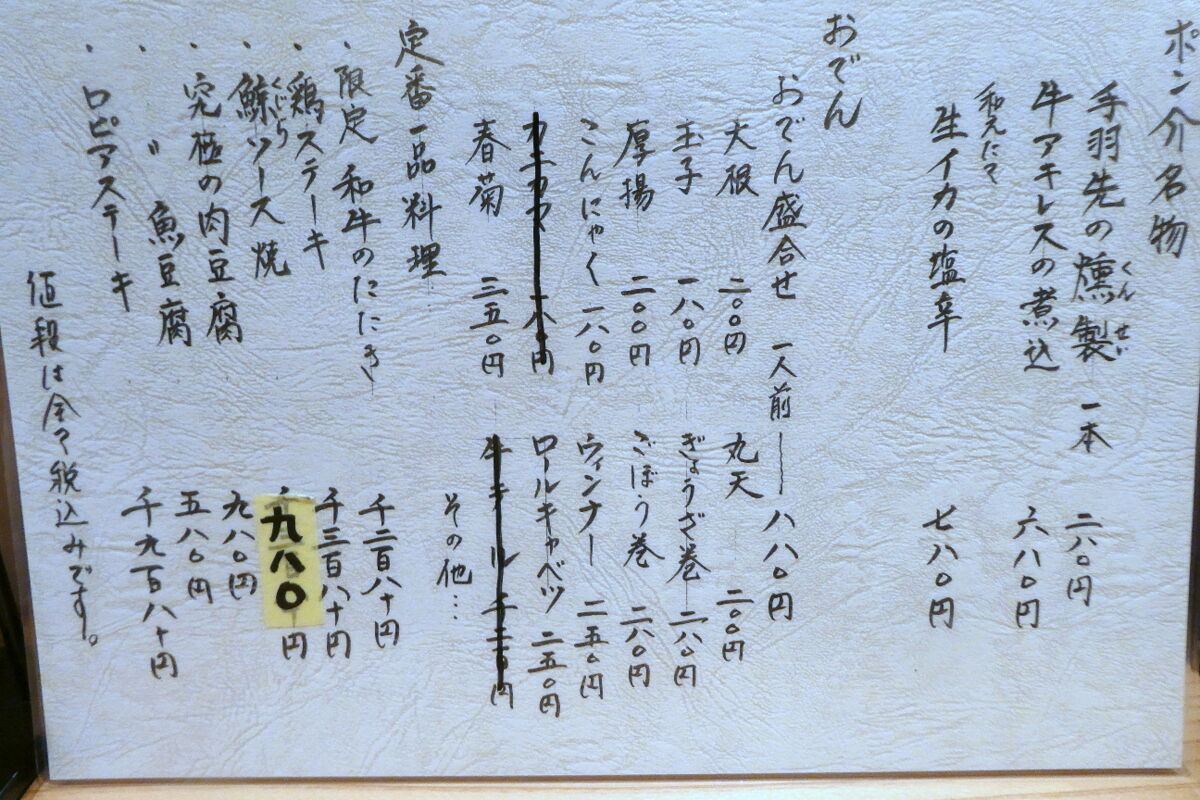 ポン介名物
手羽先の燻製 一本 二八〇円
くんせい
牛アキレスの煮込 六八〇円
和えたて
生イカの塩辛 七八〇円
おでん
おでん盛合せ 一人前 八八〇円
大根 二〇〇円 丸天 二〇〇円
玉子 一八〇円 ぎょうざ巻 二八〇円
厚揚 二〇〇円 ごぼう巻 二八〇円
こんにゃく 一八〇円 ウィンナー 二五〇円
八〇円 ロールキャベツ 二五〇円
春菊 三五〇円
その他…
定番一品料理
・限定 和牛のたたき 千二百八十円
・鶏ステーキ 千三百八十円
・鯨ソース焼 九八〇円
くじら
・究極の肉豆腐 九八〇円
・〃 魚豆腐 五八〇円
・ロピアステーキ 千九百八十円
値段は全て税込みです。